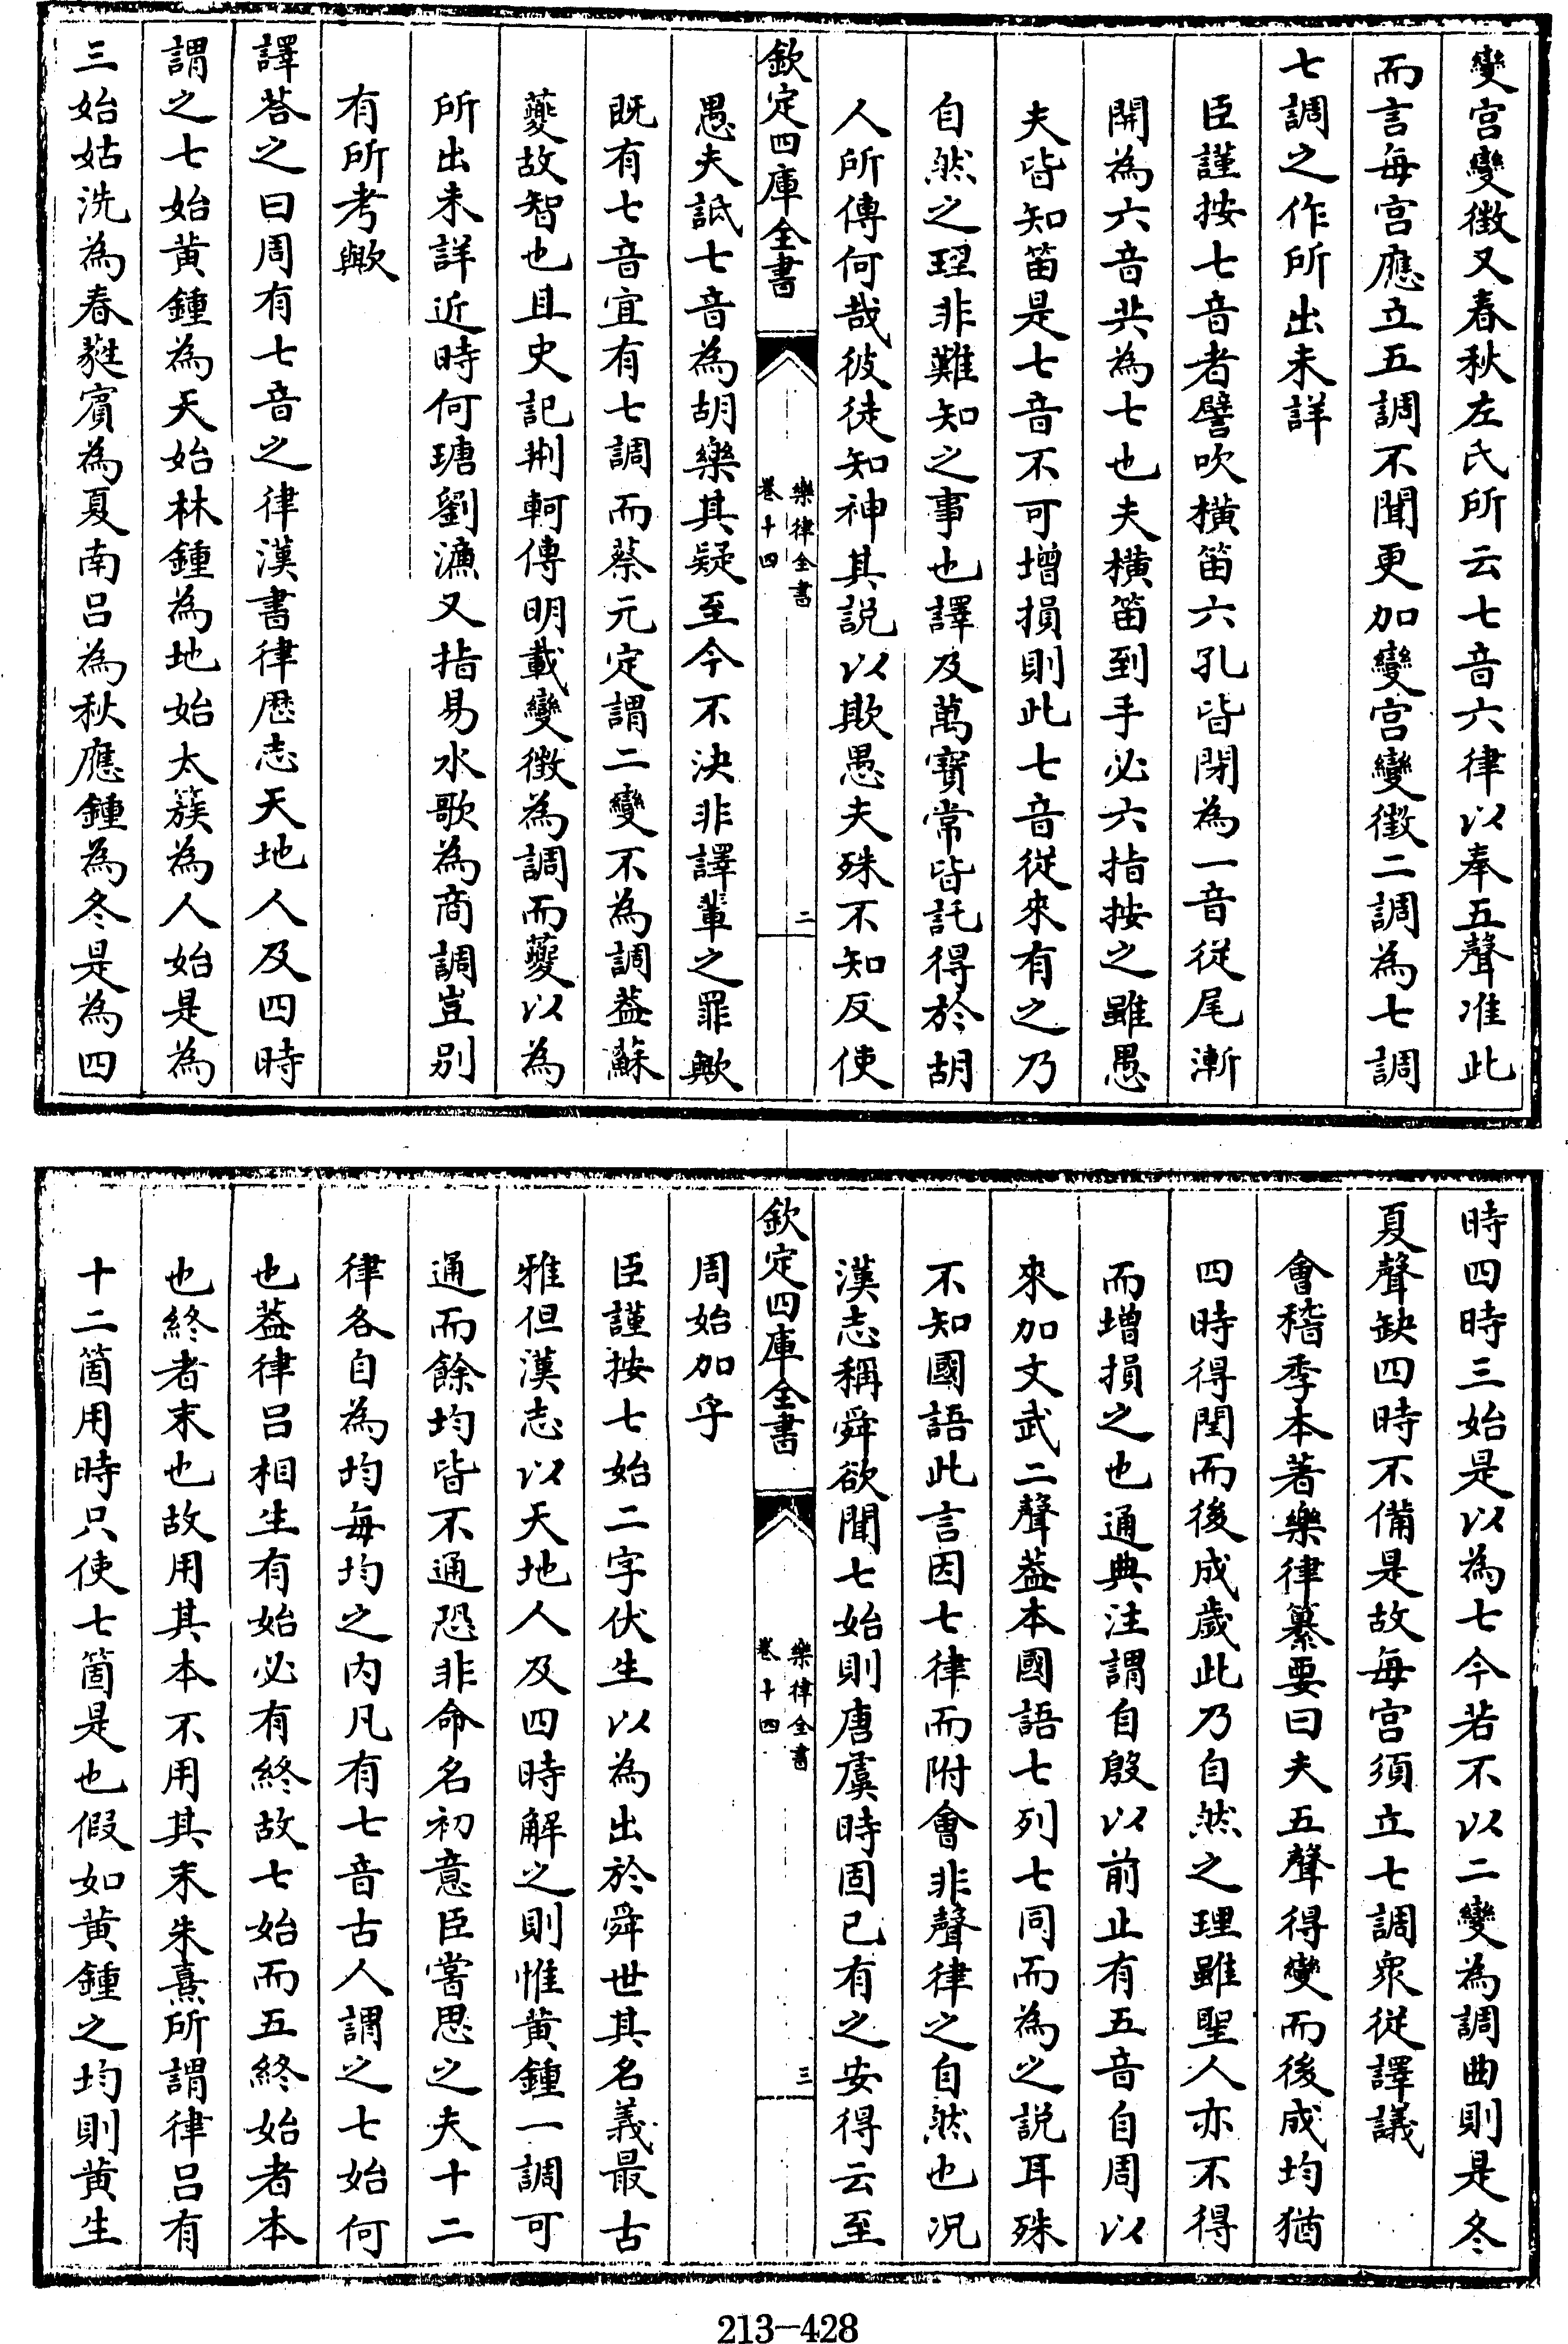 變宮變徵又春秋左氏所云七音六律以奉五聲准此
而言每宮應立五調不聞更加變宮變徵二調為七調
七調之作所出未詳
臣謹按七音者譬吹橫笛六孔皆閉為一音從尾漸
開為六音共為七也夫橫笛到手必六指按之雖愚
夫皆知笛是七音不可增損則此七音從來有之乃
自然之理非難知之事也譯及萬寶常皆託得於胡
人所傳何哉彼徒知神其説以欺愚夫殊不知反使
欽定四庫全書
樂律全書
卷十四
二
愚夫詆七音為胡樂其疑至今不決非譯輩之罪歟
既有七音宜有七調而蔡元定謂二變不為調葢蘇
夔故智也且史記荆軻傳明載變徵為調而夔以為
所出未詳近時何瑭劉濂又指易水歌為商調豈别
有所考歟
譯荅之曰周有七音之律漢書律厯志天地人及四時
謂之七始黄鍾為天始林鍾為地始太簇為人始是為
三始姑洗為春蕤賓為夏南呂為秋應鍾為冬是為四
時四時三始是以為七今若不以二變為調曲則是冬
夏聲缺四時不備是故每宮須立七調衆從譯議
會稽季本著樂律纂要曰夫五聲得變而後成均猶
四時得閏而後成歲此乃自然之理雖聖人亦不得
而增損之也通典注謂自殷以前止有五音自周以
來加文武二聲葢本國語七列七同而為之説耳殊
不知國語此言因七律而附會非聲律之自然也况
漢志稱舜欲聞七始則唐虞時固已有之安得云至
欽定四庫全書
樂律全書
卷十四
三
周始加乎
臣謹按七始二字伏生以為出於舜世其名義最古
雅但漢志以天地人及四時解之則惟黄鍾一調可
通而餘均皆不通恐非命名初意臣嘗思之夫十二
律各自為均每均之内凡有七音古人謂之七始何
也葢律呂相生有始必有終故七始而五終始者本
也終者末也故用其本不用其末朱熹所謂律呂有
十二箇用時只使七箇是也假如黄鍾之均則黄生
213-428